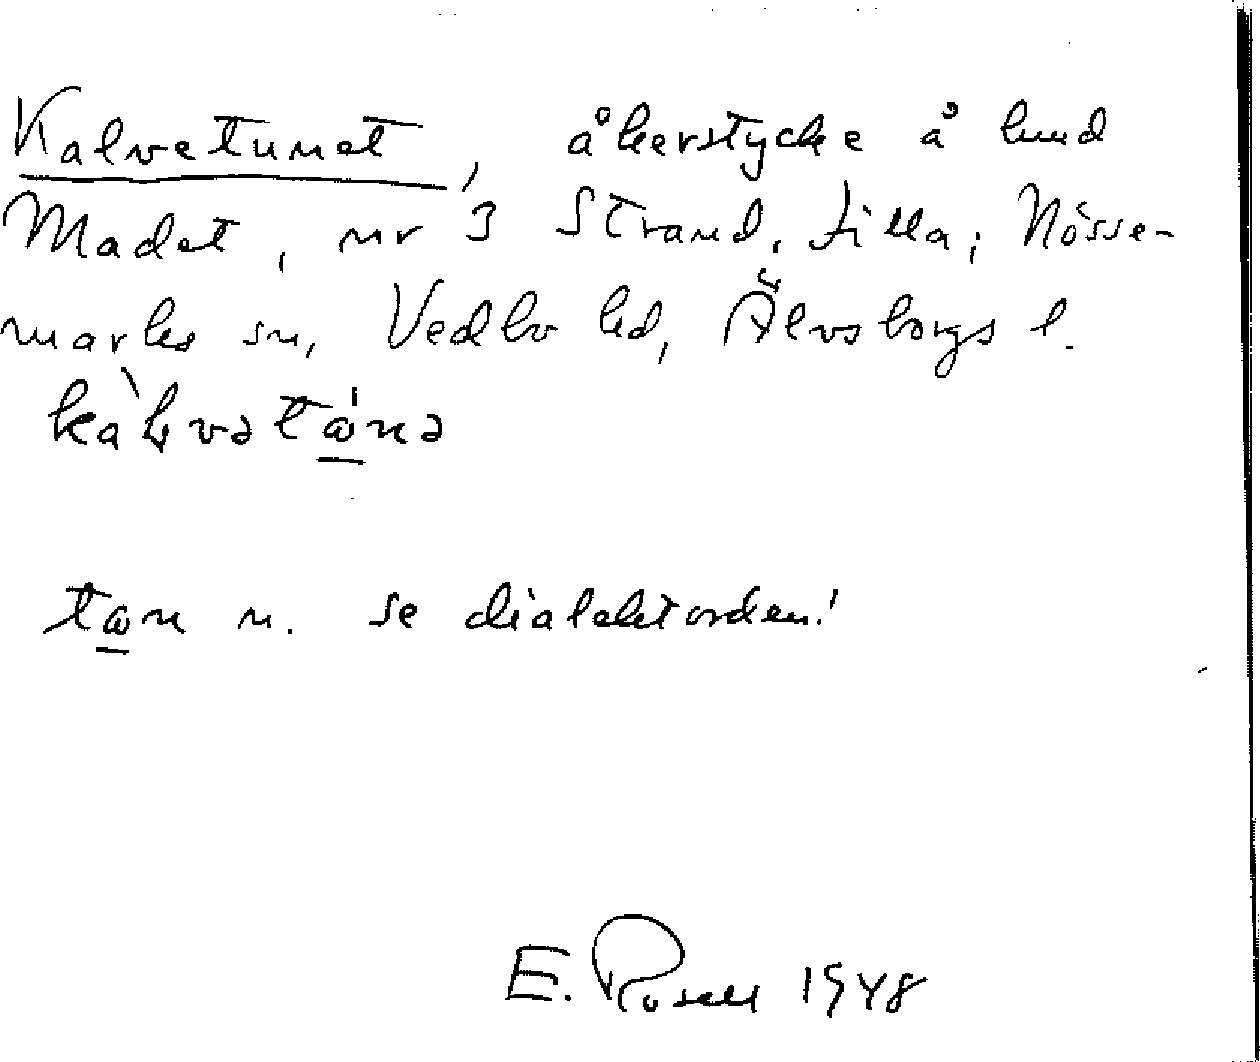 Kalvetunet, åkerstycke å lund
Madet, nr 3 Strand, Lilla; Nösse-
marks sn, Vedbo hd, Älvsborgs l.
tɷn n. se dialektorden!
E. Rosell 1948